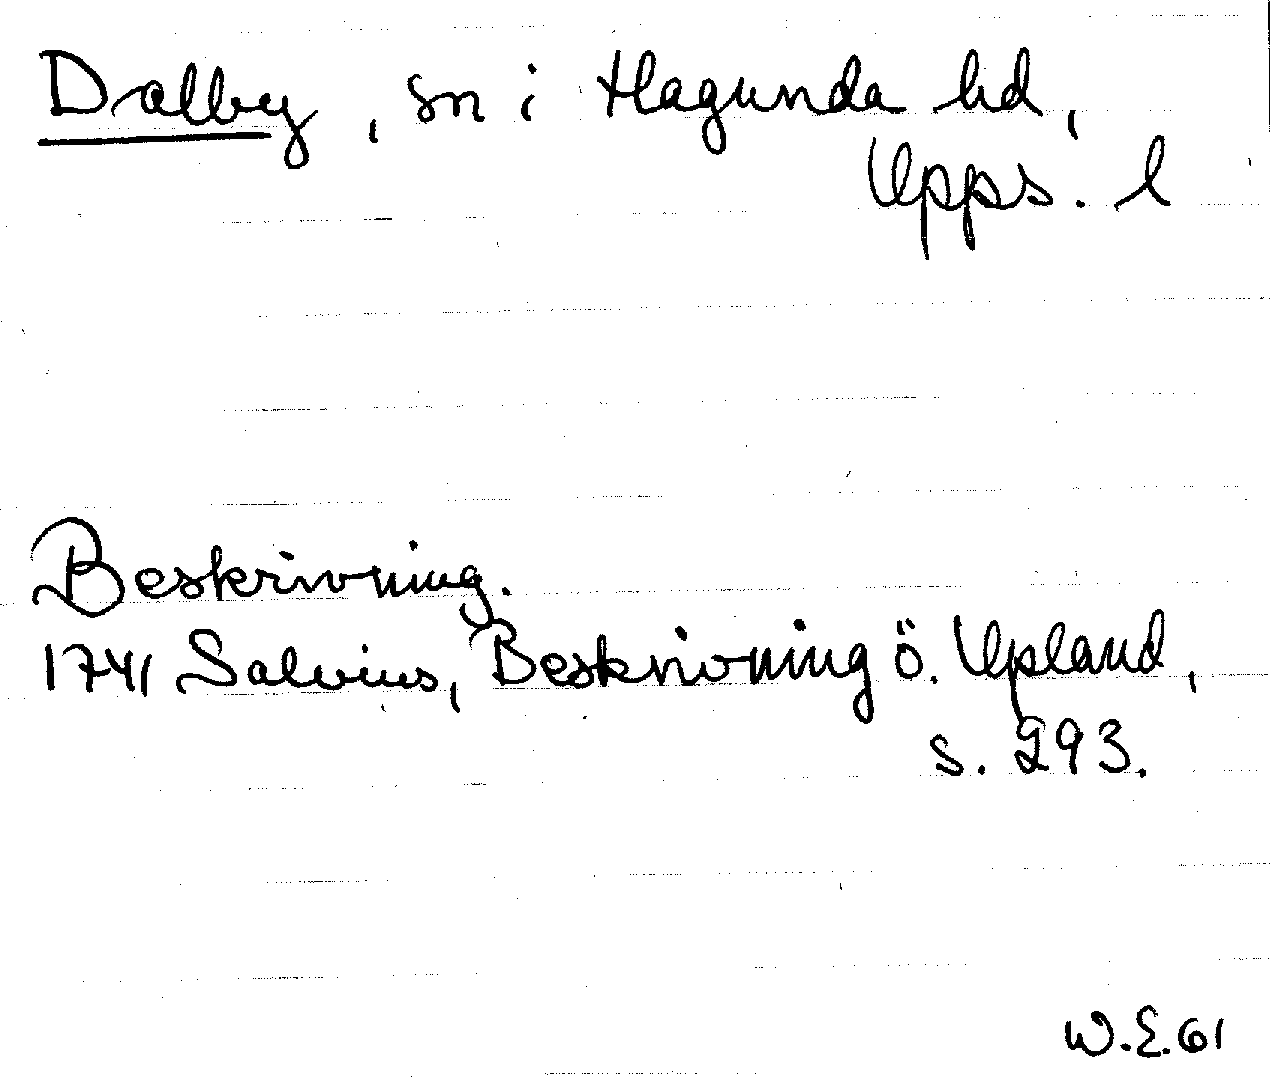 Dalby, sn i Hagunda hd,
Upps. l
Beskrivning.
1741 Salvius, Beskrivning ö. Upland,
s. 293.
W.E. 61